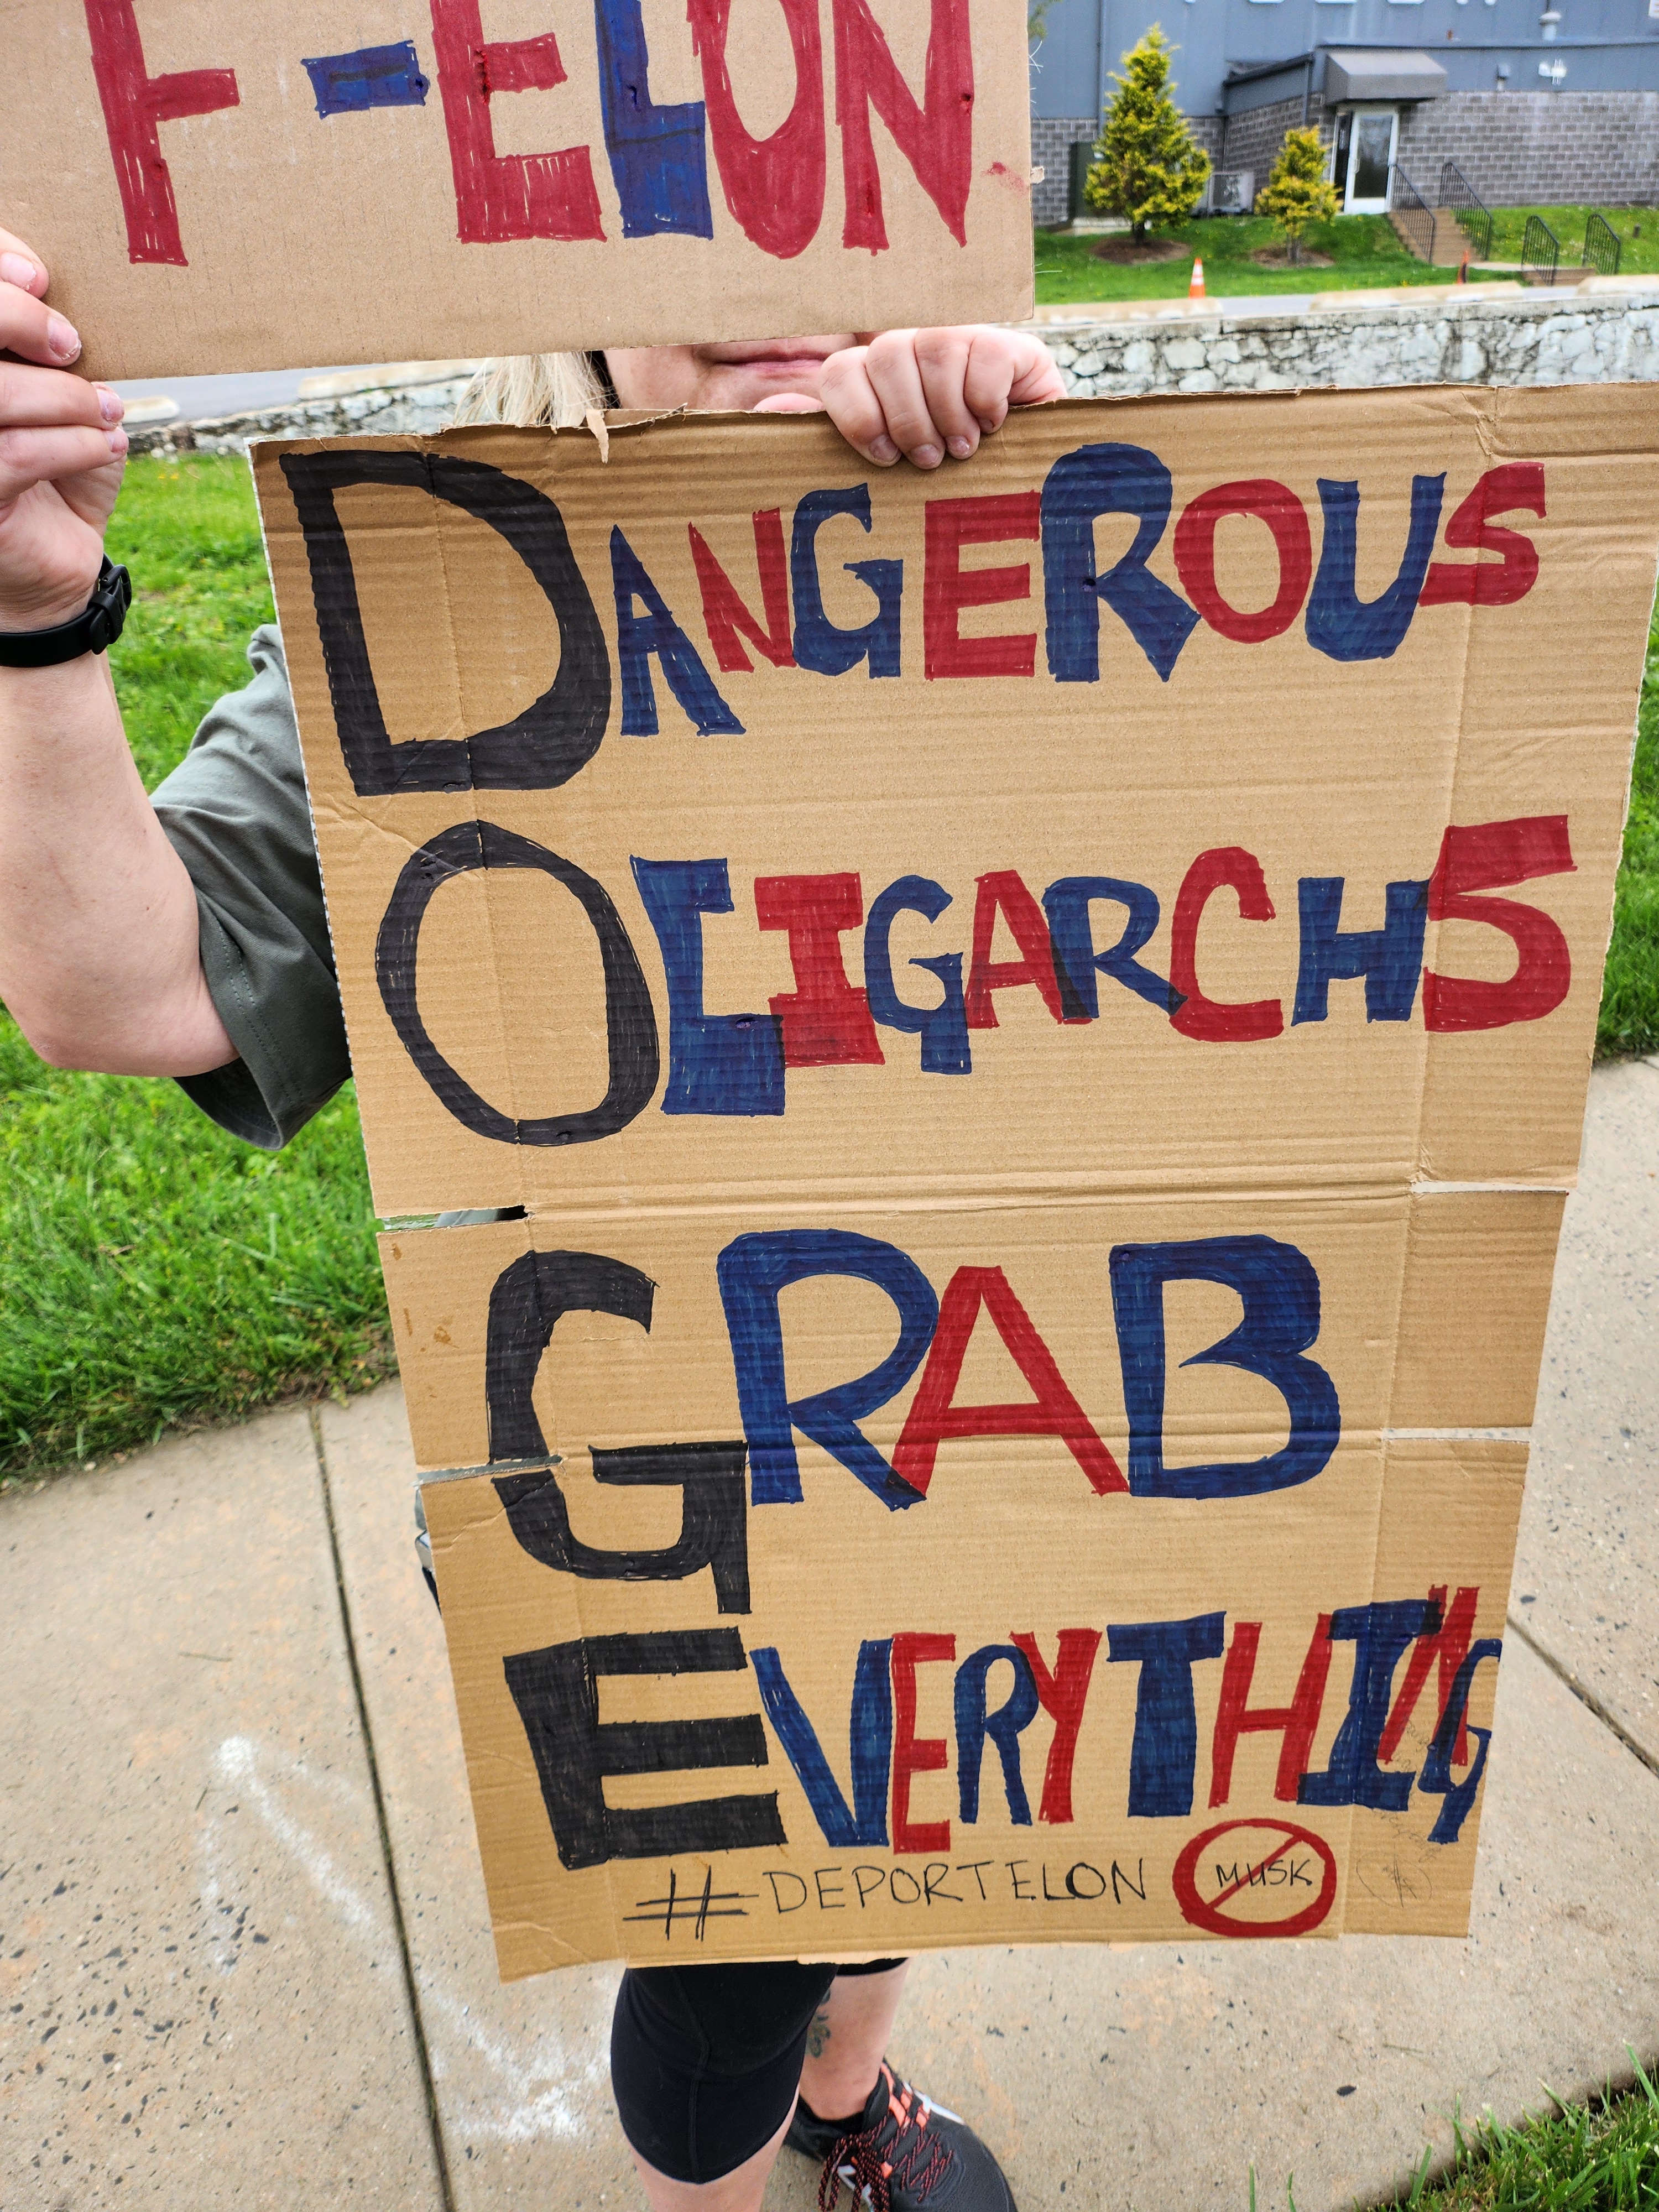 F-ELON
DANGEROUS
OLIGARCHS
GRAB
EVERYTHING
#DEPORTELON MUSK